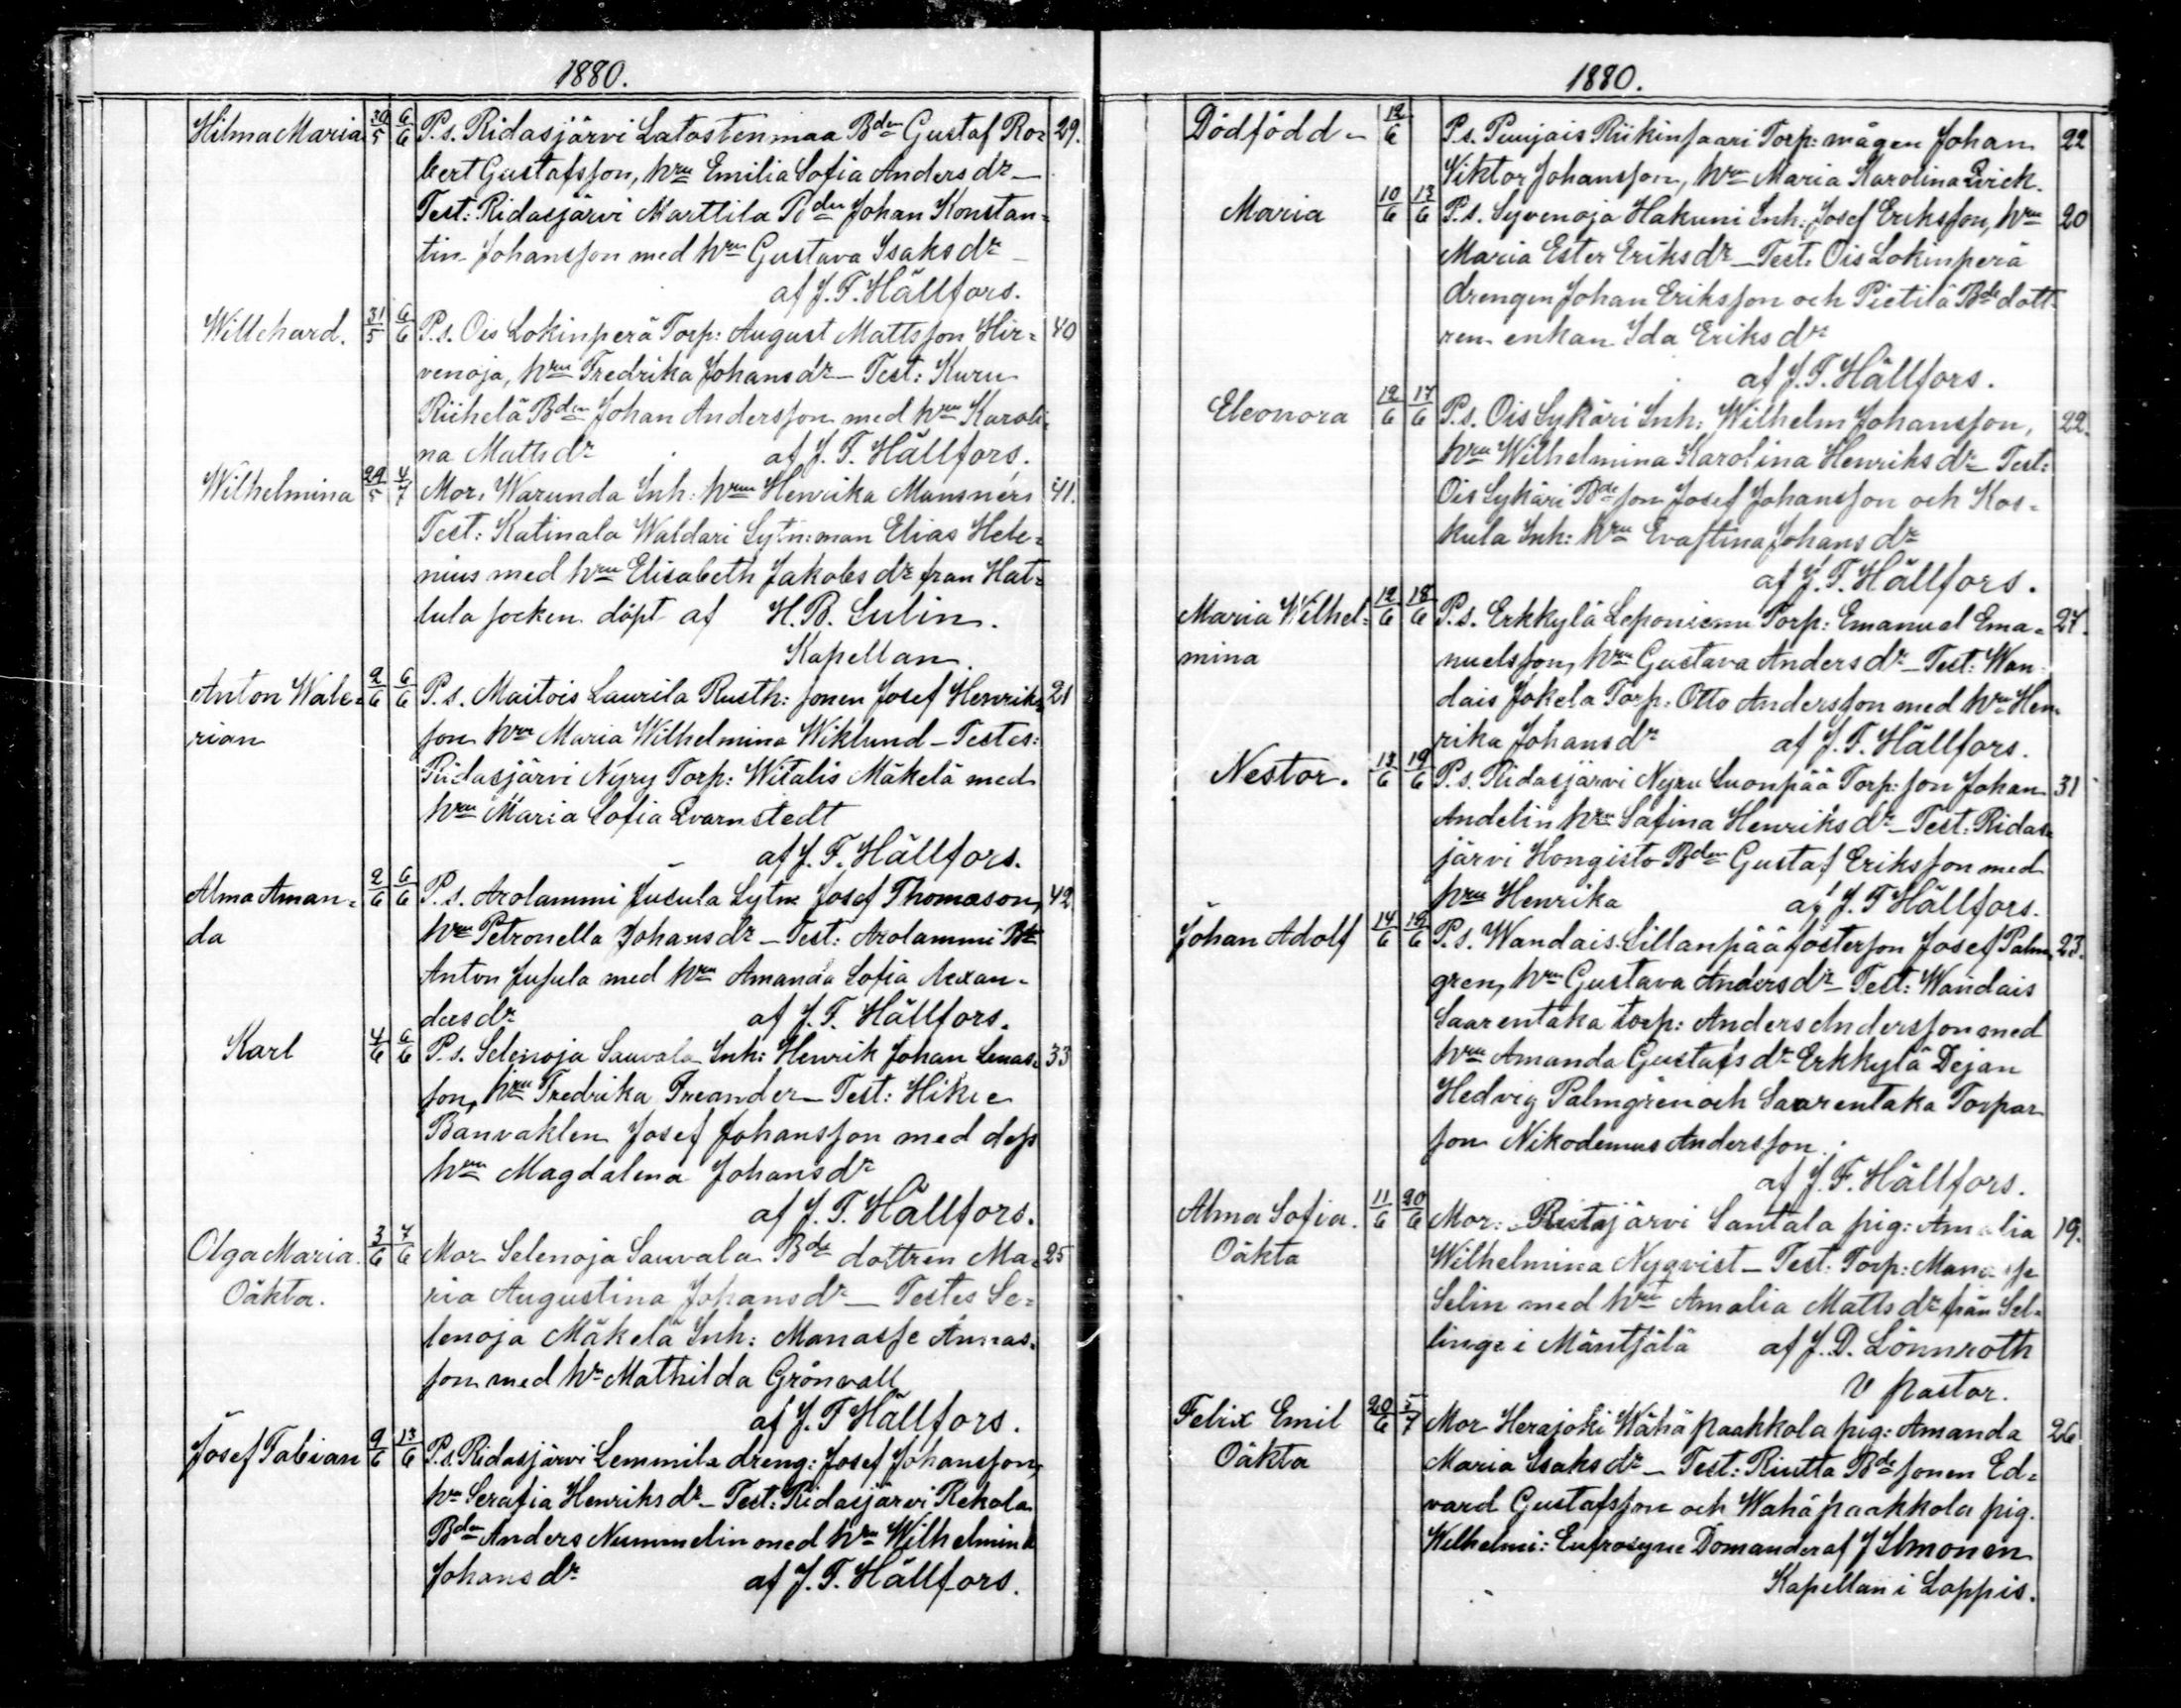 1880.
Hilma Maria 30/5 6/6 P.s. Ridasjärvi Latostenmaa Bden Gustaf Ro= 29.
bert Gustafsson, hru Emilia Sofia Andersdr –
Test: Ridasjärvi Marttila Bden Johan Konstan=
tin Johansson med hru Gustava Isaksdr –
af J. F. Hällfors.
Willehard. 31/5 6/6 P.s. Ois Lokinperä Torp: August Mattsson Hir= 40
venoja, hru Fredrika Johansdr – Test: Kuru
Riihelä Bden Johan Andersson med hru Karoli=
na Mattsdr af J. F. Hällfors.
Wilhelmina 29/5 4/7 Mor. Warunda Inh: hrun Henrika Mansnérs 41.
Test: Katinala Waldari Sytn:man Elias Hele=
nius med hru Elisabeth Jakobsdr fran Hat=
tula socken döpt af H. B. Sulin.
Kapellan.
Anton Wale= 2/6 6/6 P.s. Maitois Laurila Rusth: sonen Josef Henriks= 21
rian son hru Maria Wilhelmina Wiklund – Testes:
Ridasjärvi Nyry Torp: Witalis Mäkelä med
hru Maria Sofia Qvarnstedt
af J. F. Hällfors.
Alma Aman= 2/6 6/6 P.s. Arolammi Jusula Sytn Josef Thomason, 42
da hru Petronella Johansdr – Test: Arolammi Bde
Anton Jusula med hru Amanda Sofia Alexan=
dersdr af J. F. Hällfors.
Karl 4/6 6/6 P.s. Selenoja Sauvala Inh: Henrik Johan Lenas= 33
son, hru Fredrika Freander – Test: Hikie
Banvakten Josef Johansson med dess
hru Magdalena Johansdr
af J. F. Hällfors.
Olga Maria. 3/6 7/6 Mor Selenoja Sauvala Bde dottren Ma= 25
Oäkta. ria Augustina Johansdr – Testes Se=
lenoja Mäkelä Inh: Manasse Annas=
son med hr Mathilda Grönvall
af J. F Hällfors.
Josef Fabian 9/6 13/6 P.s. Ridasjärvi Lemmila dreng: Josef Johansson,
hr Serafia Henriksdr – Test: Ridasjärvi Rekola
Bden Anders Nummelin med hru Wilhelmina
Johansdr af J. F. Hällfors.
1880.
Dödfödd – 12/6 P.s. Puujais Riikinsaari Torp: mågen Johan 22
Viktor Johansson, hru Maria Karolina Qvick.
Maria 10/6 13/6 P.s. Syvenoja Hakuni Inh: Josef Eriksson, hru 20
Maria Ester Eriksdr – Test. Ois Lokinperä
drengen Johan Eriksson och Pietilä Bde dott=
ren enkan Ida Eriksdr
af J. F. Hällfors.
Eleonora 12/6 17/6 P.s. Ois Sykäri Inh: Wilhelm Johansson, 22.
hru Wilhelmina Karolina Henriksdr – Test:
Ois Sykäri Bde son Josef Johansson och Kos=
kula Inh: hru Evastina Johansdr
af J. F. Hällfors.
Maria Wilhel= 12/6 18/6 P.s. Erkkylä Leponiemi Torp: Emanuel Ema= 27.
mina nuelsson, hru Gustava Andersdr – Test: Wan=
dais Jokela Torp: Otto Andersson med hru Hen=
rika Johansdr af J. F. Hällfors.
Nestor. 13/6 19/6 P.s. Ridasjärvi Nyru Luonpää Torp: son Johan 31
Andelin hru Safina Henriksdr – Test: Ridas=
järvi Hongisto Bden Gustaf Eriksson med
hru Henrika af J. F Hällfors.
Johan Adolf 14/6 19/6 P.s. Wandais Sillanpää fosterson Josef Palm= 23.
gren, hru Gustava Andersdr – Test: Wandais
Saarentaka Torp: Anders Andersson med
hru Amanda Gustafsdr Erkkylä Dejan
Hedvig Palmgren och Saarentaka Torpar
son Nikodemus Andersson.
af J. F. Hällfors.
Alma Sofia. 11/6 20/6 Mor: järvi Santala pig: Amalia 19.
Oäkta Wilhelmina Nyqvist – Test: Torp: Manasse
Selin med hru Amalia Mattsdr från Sel=
linge i Mäntsälä af J. D. Lönnroth
V Pastor.
Felix Emil 20/6 5/7 Mor Herajoki Wähä paakkola pig: Amanda 26
Oäkta Maria Isaksdr – Test: Riutta Bde sonen Ed=
vard Gustafsson och Wähäpaakkola pig.
Wilhelmi: Eufrosyne Domander af J Ilmonen
Kapellan i Loppis.